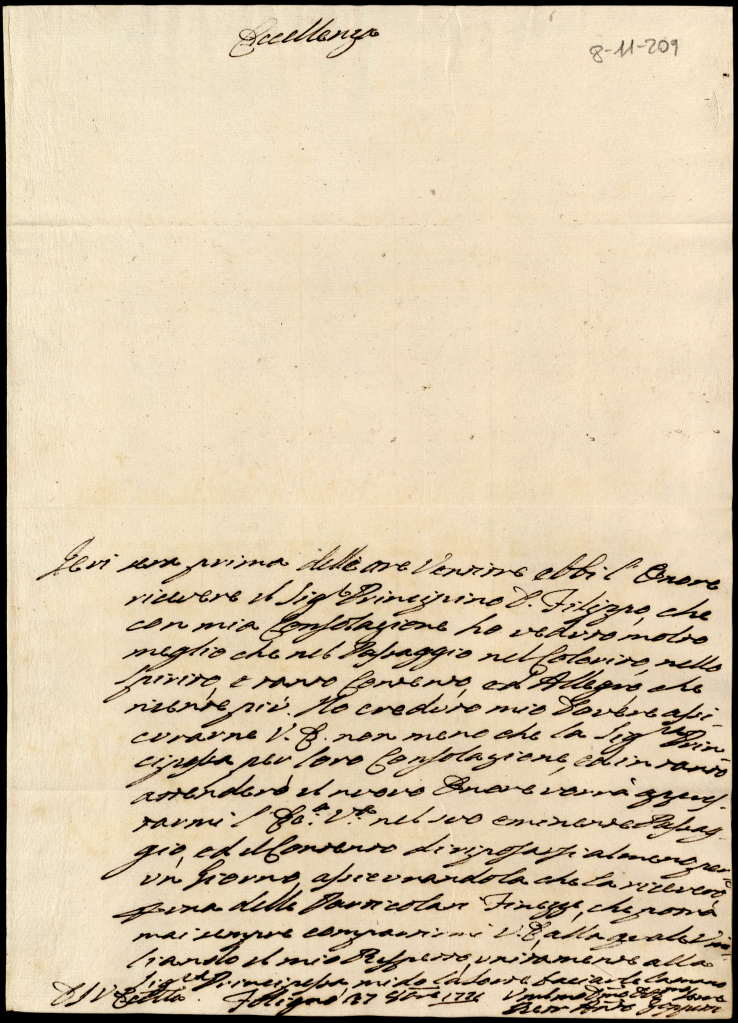 Eccellenza
8-11-209
Jeri sera prima delle ore Ventitre ebbi l'Onore
ricevere il Sig.re Principino D. Filippo, che
con mia Consolazione ho veduto molto
meglio che nel Passaggio nel Colorito, nello
Spirito, e tanto Contento, ed Allegro, che
niente più. Ho creduto mio Dovere assi
curarne V. E. non meno che la Sig.ra Prin
cipessa per loro Consolazione, ed in tanto
attenderò il nuovo Onore vorrà
l' Ec.a V.a nel suo eminente Passag-
gio, ed il Contento di riposarsi almeno per
un Giorno, assicurandola che la riceverò
una delle Particolari Finezze, che potrà
mai sempre compartirmi V. E., alla quale
liando il mio Rispetto, unitamente alla
Sig.ra Principessa mi do l'
Di V. Ecc.lla Foligno 27